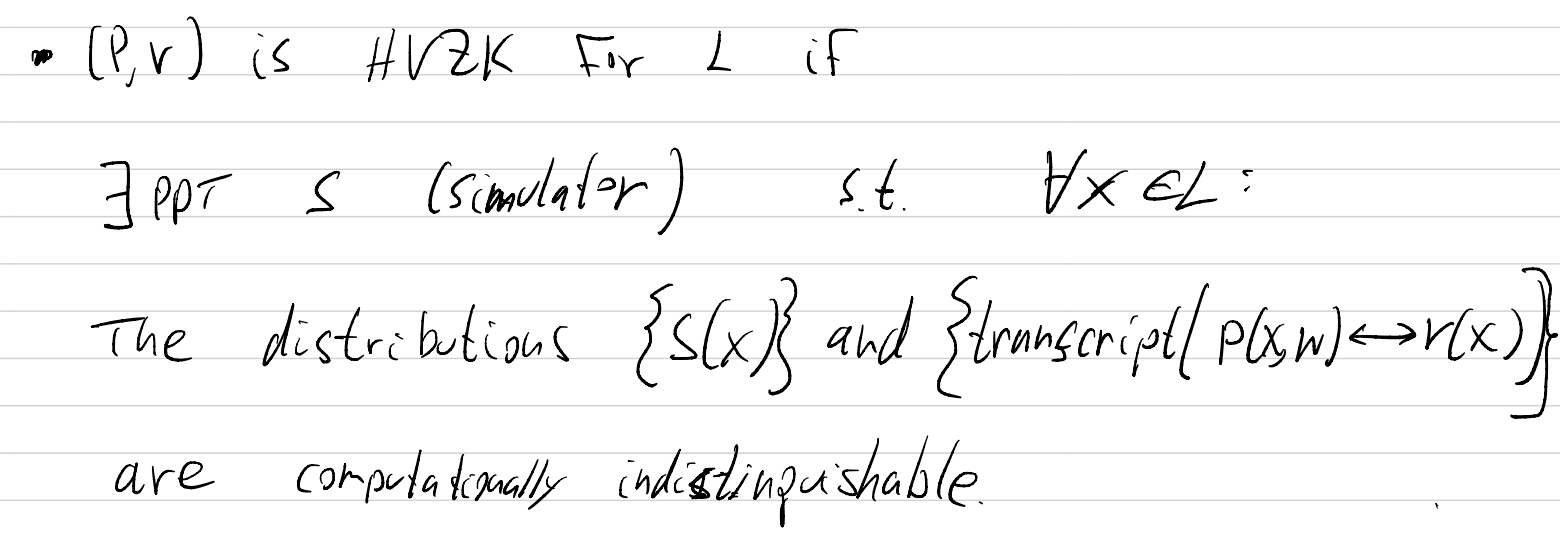 • (P,V) is HVZK For L if
∃ PPT S (simulator) s.t. ∀x ∈ L :
The distributions {S(x)} and {transcript[P(x,w)↔V(x)]}
are computationally indistinguishable.